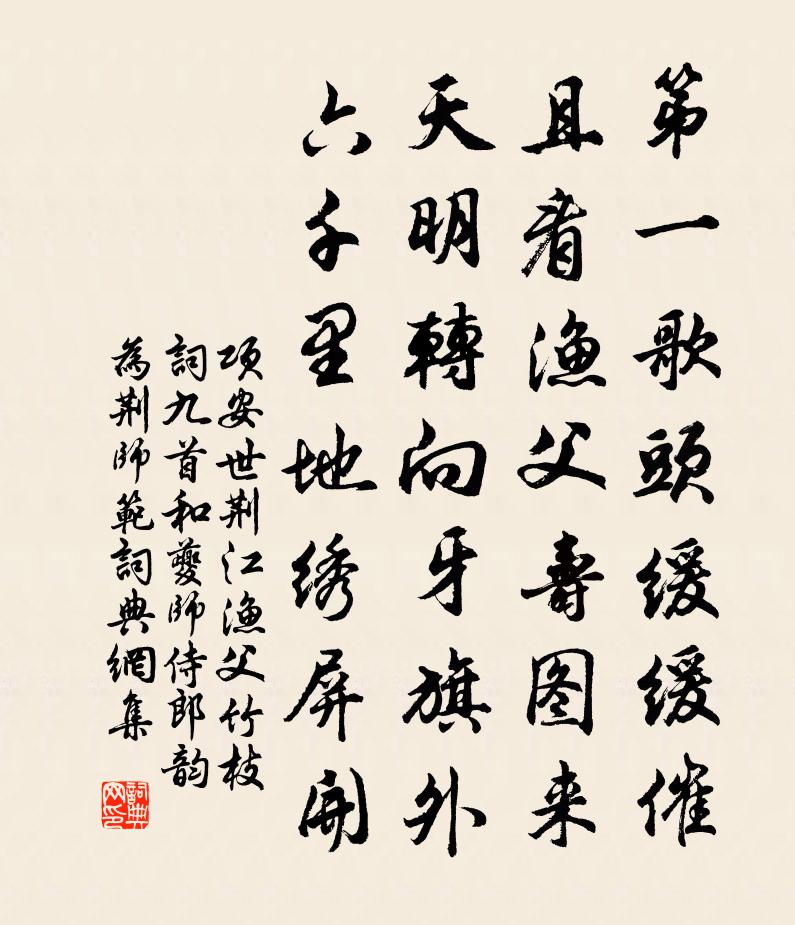 第一歌頭緩緩催
且看漁父壽图来
天明轉向牙旗外
六千里地绣屏開
项安世荆江漁父竹枝
詞九首和夔師侍郎韵
為荆師範詞典網集
詞典
网印